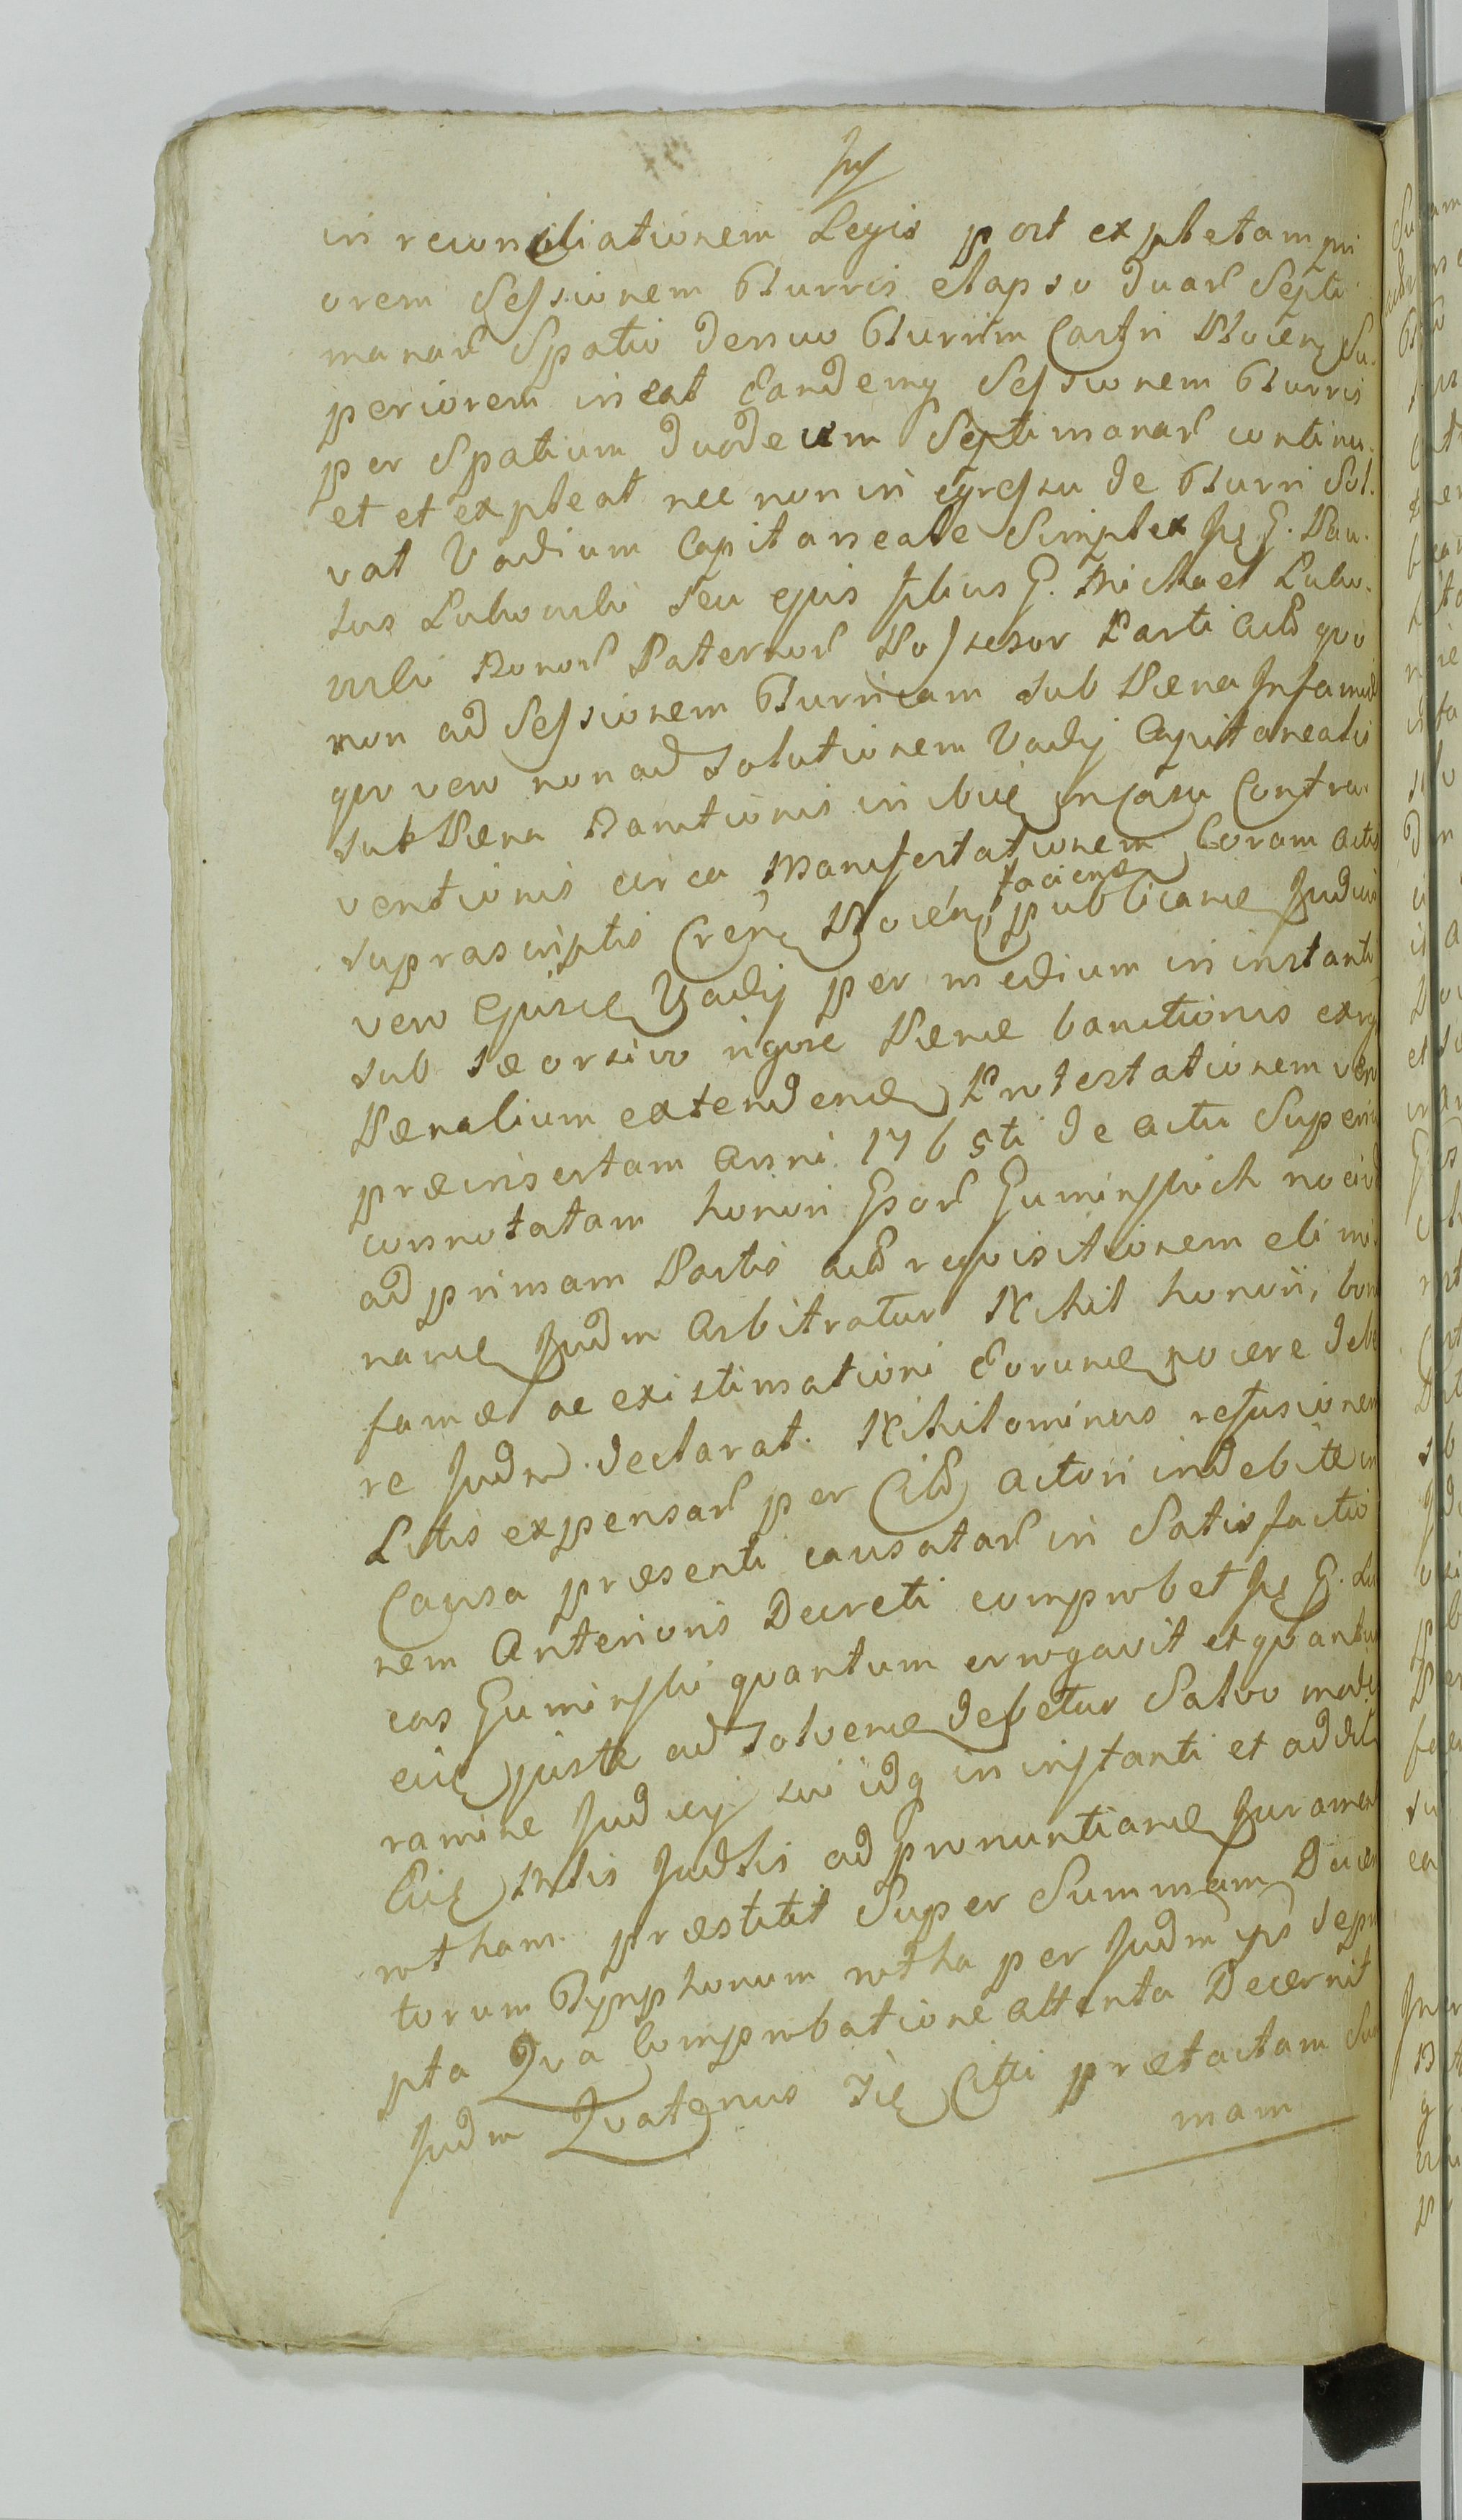 in reconciliationem Legis post expletam pri
orem Sessionem Turris elapso duar Septi
manar Spatio denuo Turrim Castri Kiovien Su-
periorem ineat Eandemq Sessionem Turris
per Spatium duodecim Septimanar continu-
et et expleat nec non in egressu de Turri Sol-
vat Vadium Capitaneale Simplex G. Pau-
lus filius G. Michael
Bonor Paternor Possessor Parti Actē quo
non ad Sessionem Turricam sub Pœna Infamiæ
quo vero non ad solutionem Vadij Capitanealis
sub Pœna Banitionis in casu Contra-
ventionis circa Manifestationem Coram actis
suprascriptis faciend publicand Judicij
vero Ejusd Vadij per medium in instanti
sub seorsivo rigore Pœnæ banitionis
Pœnalium extendend Protestationem vero
præinsertam Anni 1765ti de actu Superius
connotatam honori
ad primam Partis actē requisitionem elimi-
nand Judm Arbitratur Nihil honori, bonæ
famæ ac existimationi Eorund nocere debe
re Judm declarat. Nihilominus refusionem
Litis expensar per actori indebite in
Causa præsenti causatar in Satisfactio
nem Anterioris Decreti comprobet G. Lu
cas quantum erogavit et quantum
eid juste adsolvend debetur Salvo mode
ramine Judicij sui idq in instanti et addit
Eid Judlis ad pronuntiand Jurament
rotham præstitit Super Summam Ducen
torum Tymphonum rotha per Judm ips
pta Qva Comprobatione attenta Decernit
Judm Qvatenus Citti prætactam Sum
mam